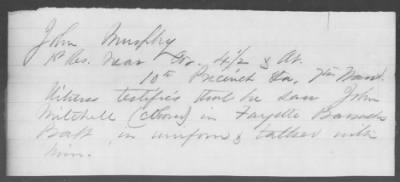 John Murphy
Res. near Cor. 4½ & At.
10th Precinct Ca. 7th Ward.
Witness testifies that he saw John
Mitchell (clown) in Fayette Barracks
Balt. in uniform & talked with
him.